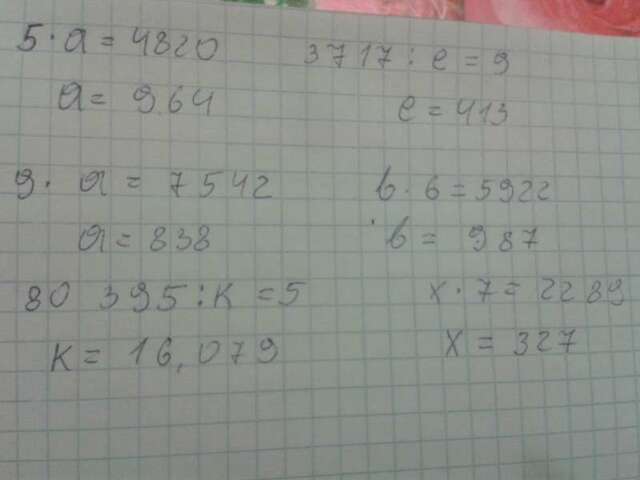 5·a=4820 3717:e=9
a=964 e=413
9·a=7542 b·6=5922
a=838 b=987
80 395:к=5 x·7=2289
к=16,079 x=327